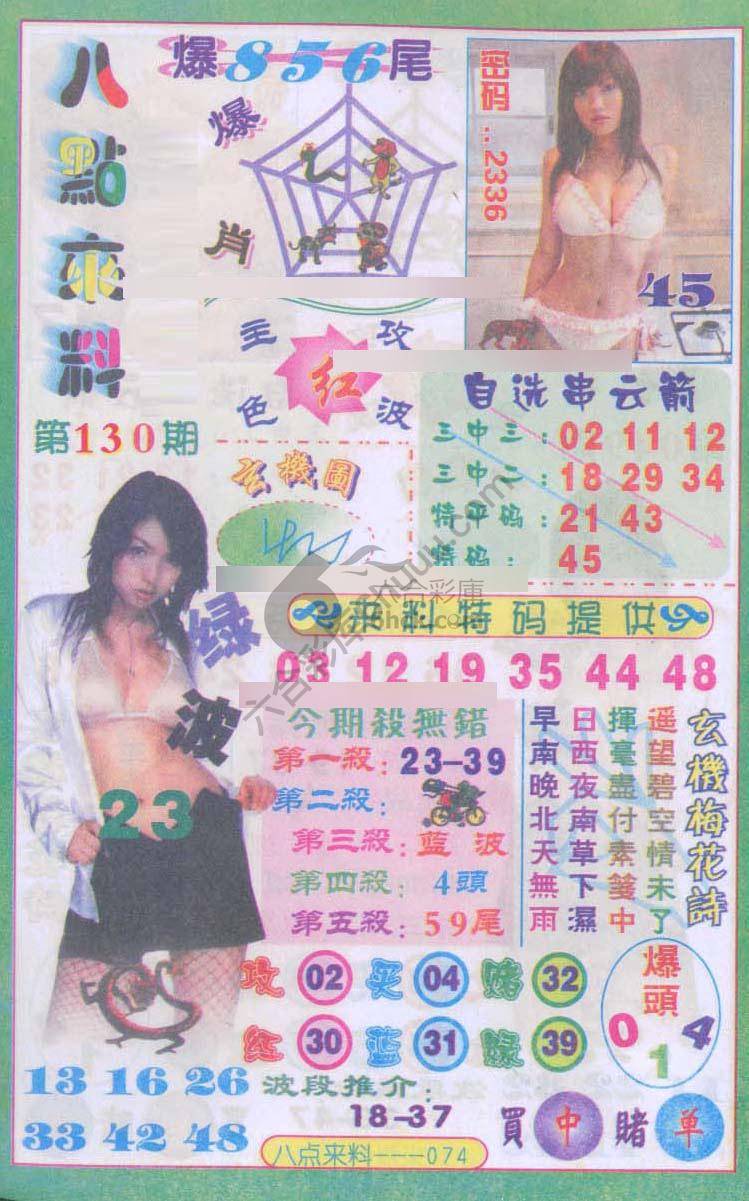 八點來料
爆856尾
爆肖
密码:2336
45
主攻
红
色波
第130期
玄機圖
自选串云箭
三中三:02 11 12
三中二:18 29 34
特平码:21 43
特码:45
绿波
23
来料特码提供
03 12 19 35 44 48
今期殺無錯
第一殺:23-39
第二殺:
第三殺:藍波
第四殺:4頭
第五殺:59尾
玄機梅花詩
遥望碧空情未了
揮毫盡付素箋中
日西夜南草下濕
早南晚北天無雨
攻 02 买 04 赌 32
红 30 蓝 31 绿 39
爆頭
0 1 4
13 16 26
33 42 48
波段推介:
18-37
買中賭单
八点来料---074
六合彩庫
6hdk.com